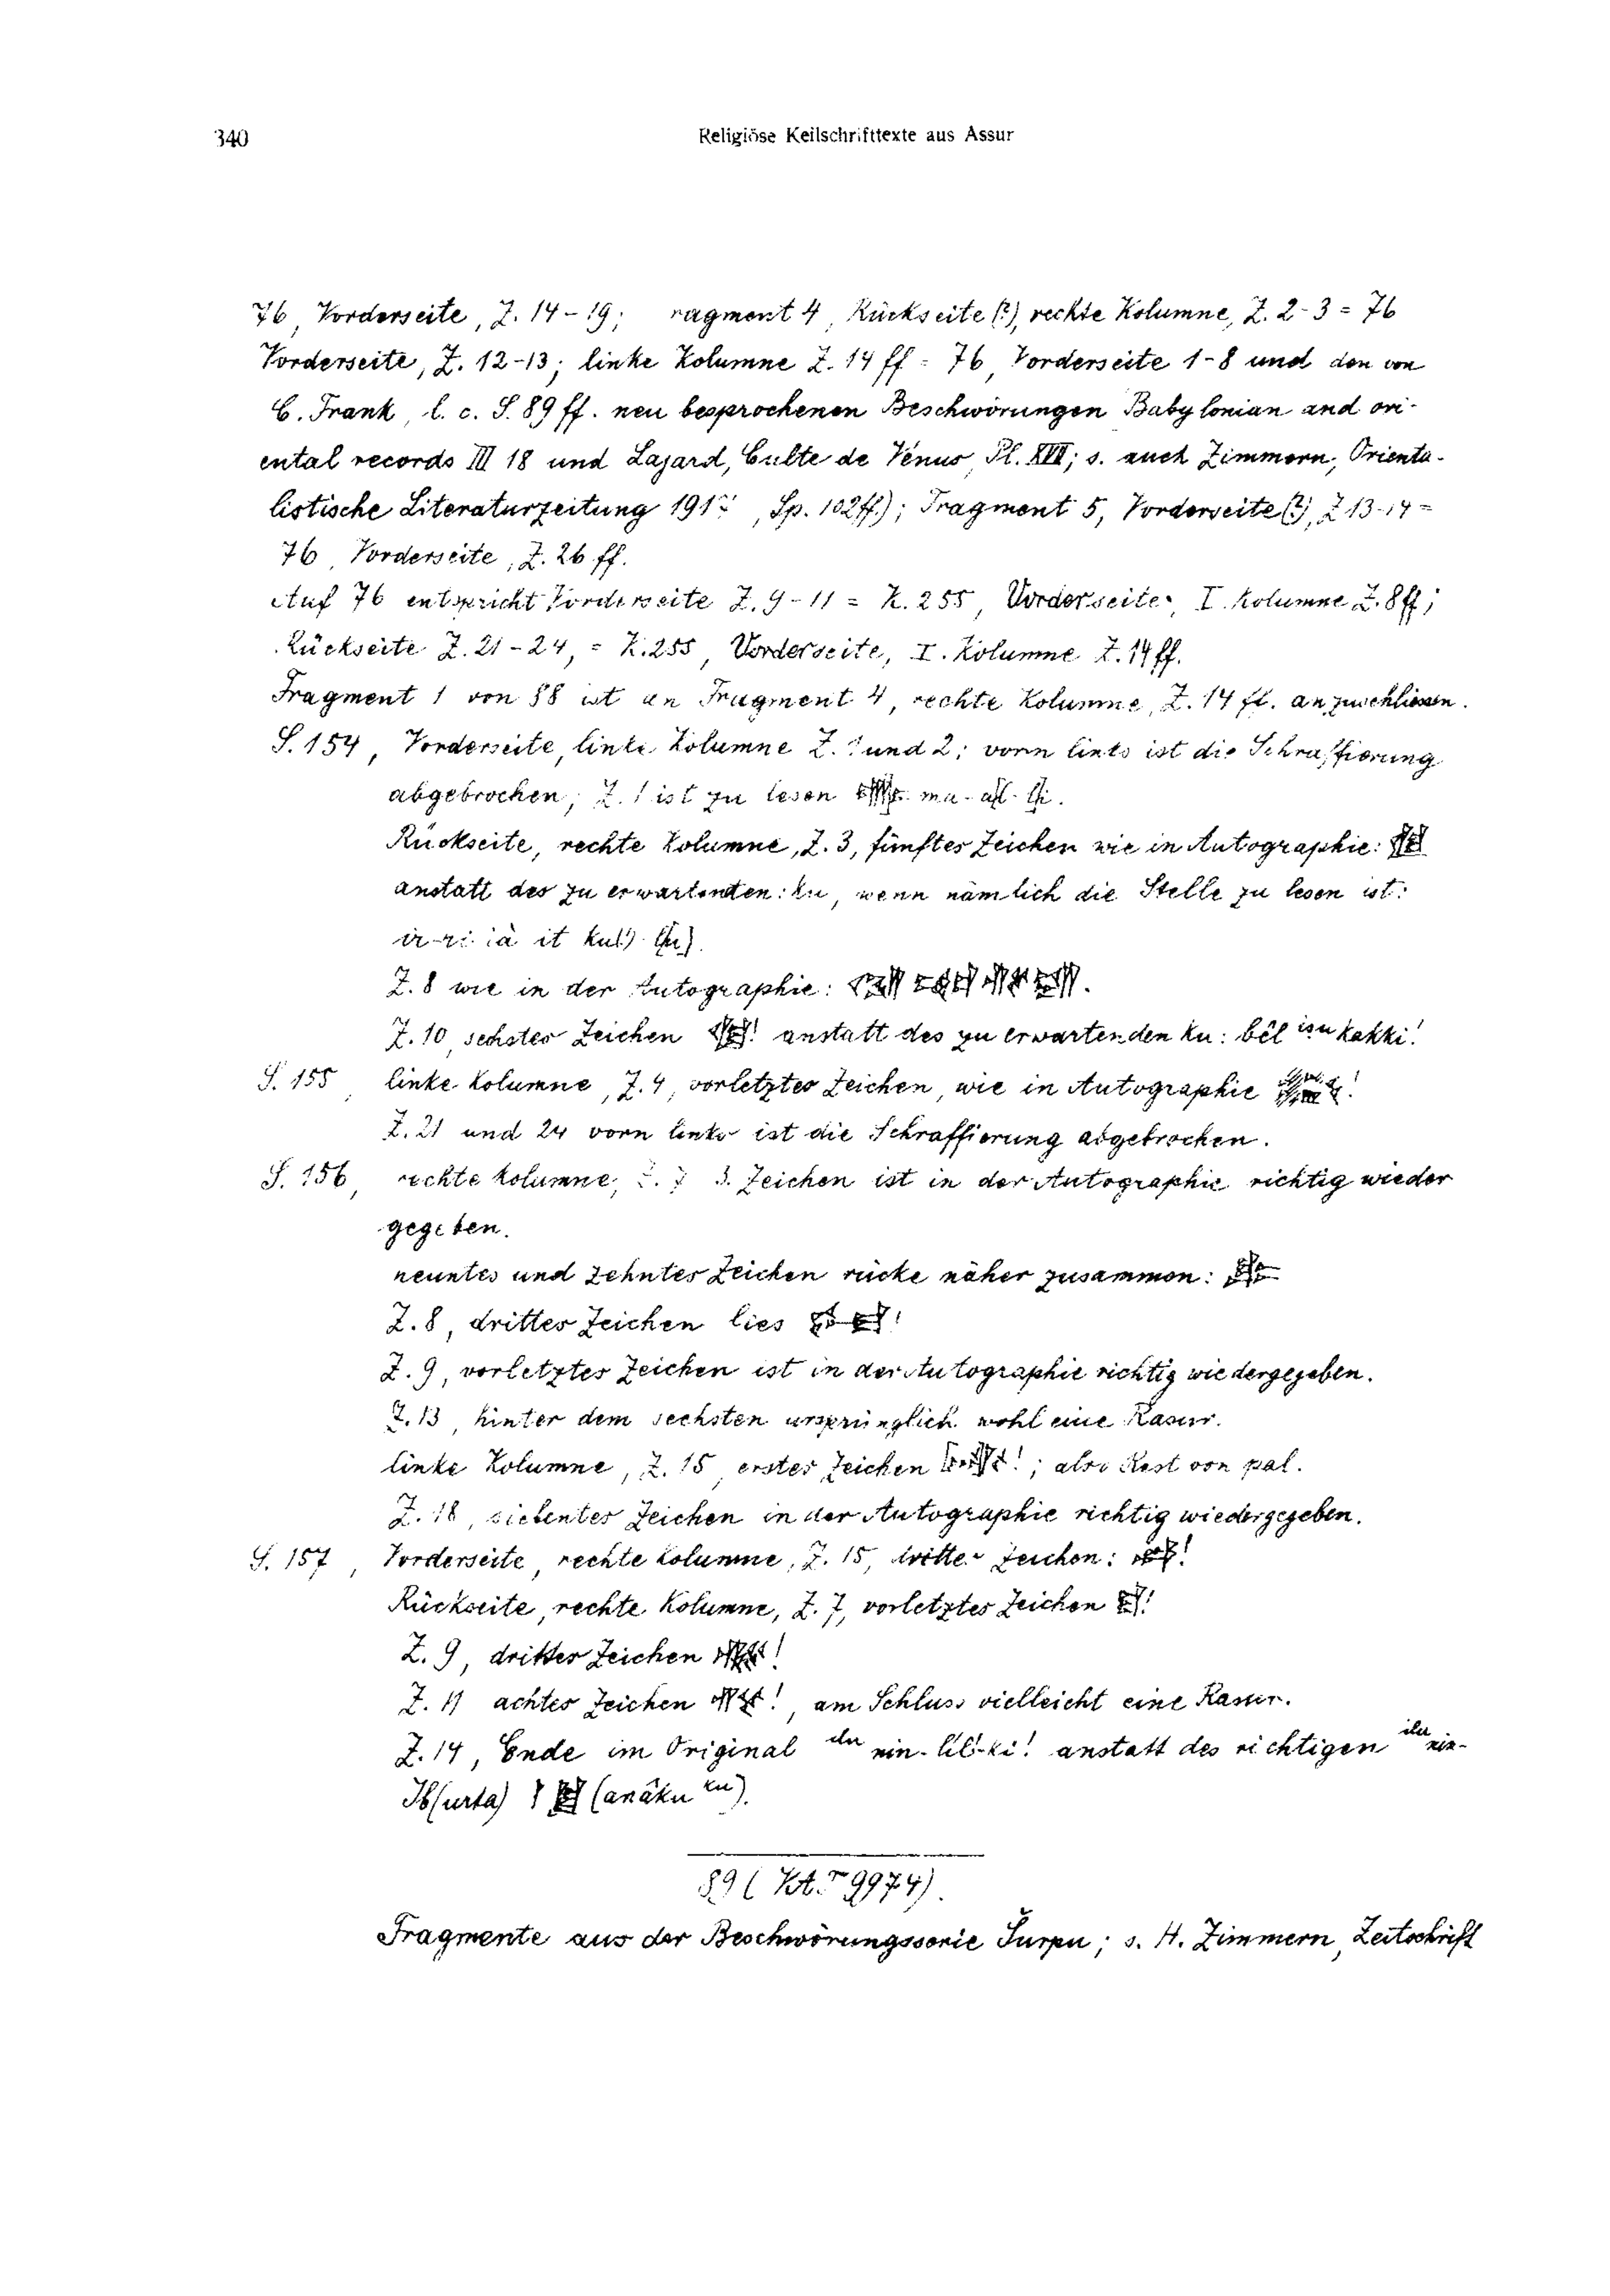 340
Religiöse Keilschrifttexte aus Assur
76, Vorderseite, Z. 14-19; ragment 4, Rückseite (?), rechte Kolumne, Z. 2-3 = 76
Vorderseite, Z. 12-13; linke Kolumne Z. 14 ff = 76, Vorderseite 1-8 und den von
C. Frank, l. c. S. 89 ff. neu besprochenen Beschwörungen Babylonian and ori-
ental records III 18 und Lajard, Culte de Vénus Pl. XVII; s. auch Zimmern, Orienta-
listische Literaturzeitung 191 , Sp. 102 ff.); Fragment 5, Vorderseite (?), Z 13-14 =
76, Vorderseite, Z. 26 ff.
Auf 76 entspricht Vorderseite Z. 9-11 = K. 255, Vorderseite, I. Kolumne Z. 8 ff;
Rückseite Z. 21-24, = K. 255, Vorderseite, I. Kolumne Z. 14 ff.
Fragment 1 von 88 ist an Fragment 4, rechte Kolumne, Z. 14 ff. anzuschliessen.
S. 154, Vorderseite, linke Kolumne Z. 1 und 2; vorn links ist die Schraffierung
abgebrochen; Z. 1 ist zu lesen ma-
Rückseite, rechte Kolumne, Z. 3, fünftes Zeichen wie in Autographie:
anstatt des zu erwartenden: ku, wenn nämlich die Stelle zu lesen ist:
it
Z. 8 wie in der Autographie:
Z. 10, sechstes Zeichen ! anstatt des zu erwartenden ku: bêl iṣu kakki!
S. 155, linke Kolumne, Z. 4, vorletztes Zeichen, wie in Autographie !
Z. 21 und 24 vorn links ist die Schraffierung abgebrochen.
S. 156, rechte Kolumne, Z. 7 3. Zeichen ist in der Autographie richtig wieder
gegeben.
neuntes und zehntes Zeichen rücke näher zusammen:
Z. 8, drittes Zeichen lies !
Z. 9, vorletztes Zeichen ist in der Autographie richtig wiedergegeben.
Z. 13, hinter dem sechsten ursprünglich wohl eine Rasur.
linke Kolumne, Z. 15, erstes Zeichen !; also Rest von pal.
Z. 18, siebentes Zeichen in der Autographie richtig wiedergegeben.
S. 157, Vorderseite, rechte Kolumne, Z. 15, drittes Zeichen: !
Rückseite, rechte Kolumne, Z. 7, vorletztes Zeichen !
Z. 9, drittes Zeichen !
Z. 11 achtes Zeichen !, am Schluss vielleicht eine Rasur.
Z. 14, Ende im Original ilu nin-lil-ki! anstatt des richtigen ilu nin-
Ib(urta) (anâku ku).
89 (KAT 9974).
Fragmente aus der Beschwörungsserie Šurpu; s. H. Zimmern, Zeitschrift